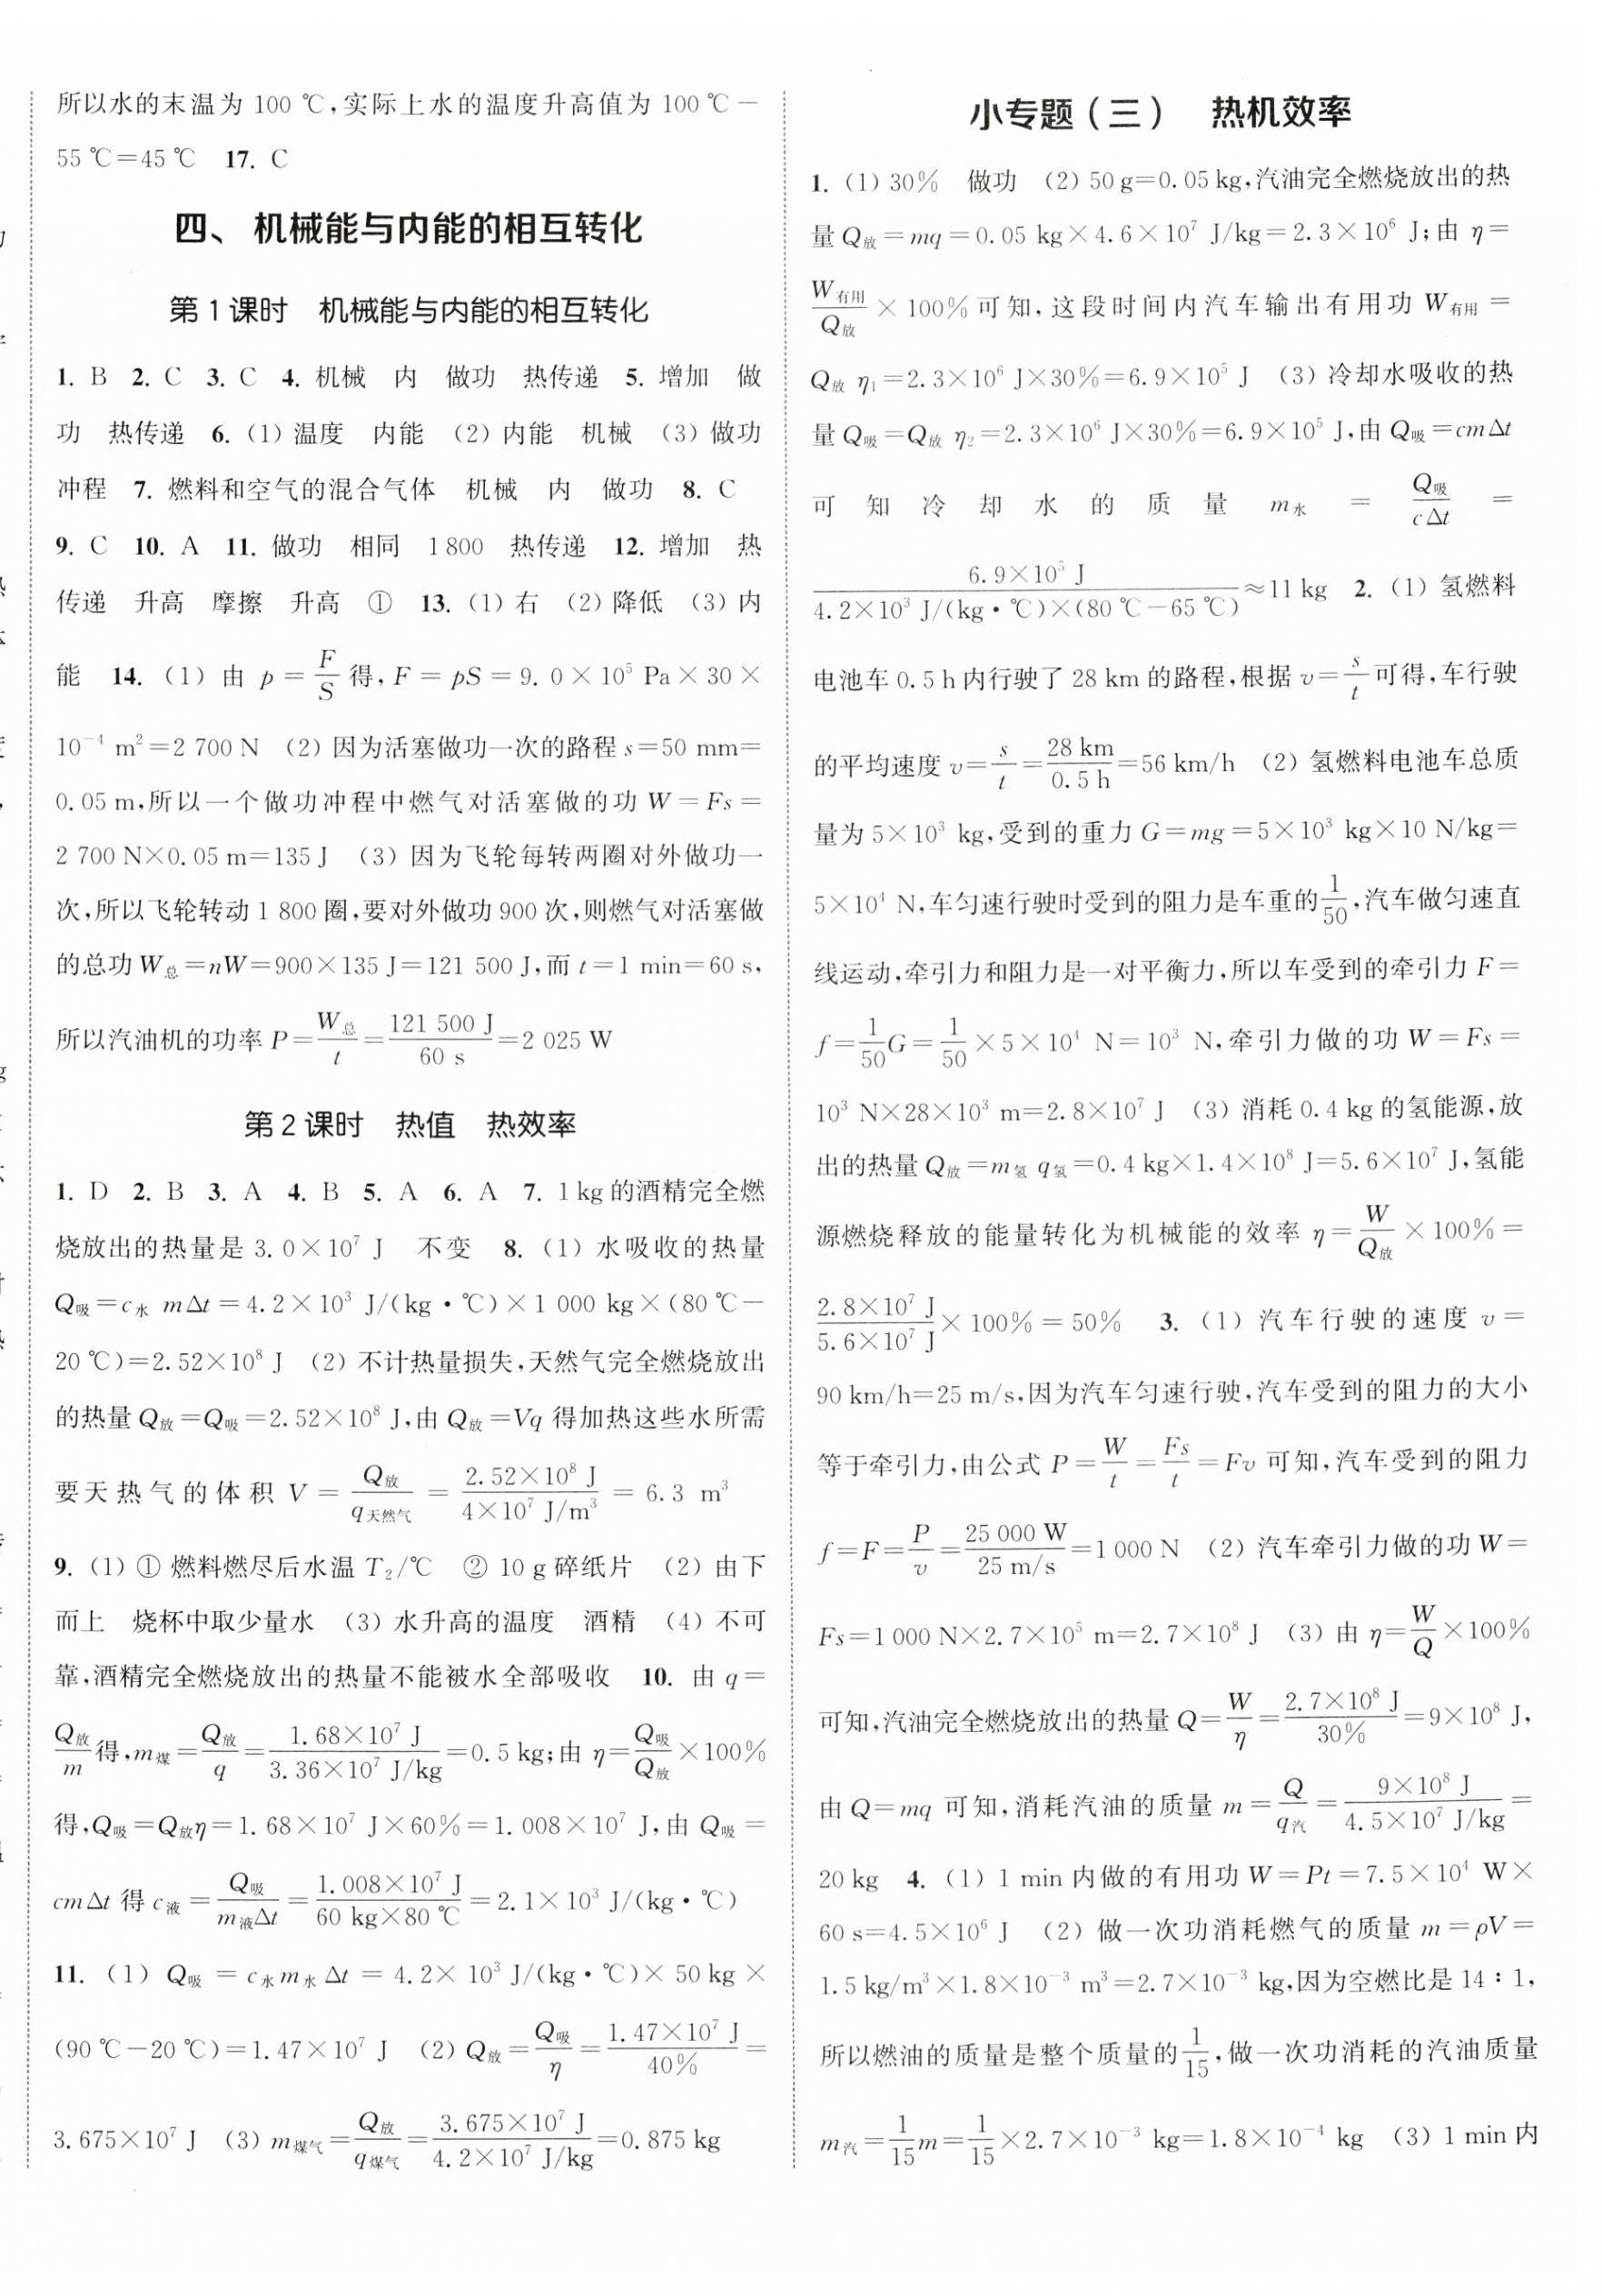 所以水的末温为 100 ℃,实际上水的温度升高值为 100 ℃－
55 ℃=45 ℃　17. C
四、 机械能与内能的相互转化
第1课时　机械能与内能的相互转化
1. B　2. C　3. C　4. 机械　内　做功　热传递　5. 增加　做
功　热传递　6. (1) 温度　内能　(2) 内能　机械　(3) 做功
冲程　7. 燃料和空气的混合气体　机械　内　做功　8. C
9. C　10. A　11. 做功　相同　1 800　热传递　12. 增加　热
传递　升高　摩擦　升高　①　13. (1) 右　(2) 降低　(3) 内
能　14. (1) 由 p = F/S 得, F = pS = 9.0×10⁵ Pa×30×
10⁻⁴ m²=2 700 N　(2) 因为活塞做功一次的路程 s=50 mm=
0.05 m,所以一个做功冲程中燃气对活塞做的功 W=Fs=
2 700 N×0.05 m=135 J　(3) 因为飞轮每转两圈对外做功一
次,所以飞轮转动 1 800 圈,要对外做功 900 次,则燃气对活塞做
的总功 W总=nW=900×135 J=121 500 J,而 t=1 min=60 s,
所以汽油机的功率 P=W总/t=121 500 J/60 s=2 025 W
第2课时　热值　热效率
1. D　2. B　3. A　4. B　5. A　6. A　7. 1 kg 的酒精完全燃
烧放出的热量是 3.0×10⁷ J　不变　8. (1) 水吸收的热量
Q吸=c水 mΔt=4.2×10³ J/(kg·℃)×1 000 kg×(80 ℃－
20 ℃)=2.52×10⁸ J　(2) 不计热量损失,天然气完全燃烧放出
的热量 Q放=Q吸=2.52×10⁸ J,由 Q放=Vq 得加热这些水所需
要天热气的体积 V=Q放/q天然气=2.52×10⁸ J/4×10⁷ J/m³=6.3 m³
9. (1) ① 燃料燃尽后水温 T₂/℃　② 10 g 碎纸片　(2) 由下
而上　烧杯中取少量水　(3) 水升高的温度　酒精　(4) 不可
靠,酒精完全燃烧放出的热量不能被水全部吸收　10. 由 q=
Q放/m 得,m煤=Q放/q=1.68×10⁷ J/3.36×10⁷ J/kg=0.5 kg;由 η=Q吸/Q放×100%
得,Q吸=Q放η=1.68×10⁷ J×60%=1.008×10⁷ J,由 Q吸=
cmΔt 得 c液=Q吸/m液Δt=1.008×10⁷ J/60 kg×80 ℃=2.1×10³ J/(kg·℃)
11. (1) Q吸=c水m水Δt=4.2×10³ J/(kg·℃)×50 kg×
(90 ℃－20 ℃)=1.47×10⁷ J　(2) Q放=Q吸/η=1.47×10⁷ J/40%=
3.675×10⁷ J　(3) m煤气=Q放/q煤气=3.675×10⁷ J/4.2×10⁷ J/kg=0.875 kg
小专题(三)　热机效率
1. (1) 30%　做功　(2) 50 g=0.05 kg,汽油完全燃烧放出的热
量 Q放=mq=0.05 kg×4.6×10⁷ J/kg=2.3×10⁶ J;由 η=
W有用/Q放×100%可知,这段时间内汽车输出有用功 W有用=
Q放 η₁=2.3×10⁶ J×30%=6.9×10⁵ J　(3) 冷却水吸收的热
量 Q吸=Q放 η₂=2.3×10⁶ J×30%=6.9×10⁵ J,由 Q吸=cmΔt
可知冷却水的质量 m水=Q吸/cΔt=
6.9×10⁵ J/4.2×10³ J/(kg·℃)×(80 ℃－65 ℃)≈11 kg　2. (1) 氢燃料
电池车 0.5 h 内行驶了 28 km 的路程,根据 v=s/t 可得,车行驶
的平均速度 v=s/t=28 km/0.5 h=56 km/h　(2) 氢燃料电池车总质
量为 5×10³ kg,受到的重力 G=mg=5×10³ kg×10 N/kg=
5×10⁴ N,车匀速行驶时受到的阻力是车重的1/50,汽车做匀速直
线运动,牵引力和阻力是一对平衡力,所以车受到的牵引力 F=
f=1/50G=1/50×5×10⁴ N=10³ N,牵引力做的功 W=Fs=
10³ N×28×10³ m=2.8×10⁷ J　(3) 消耗 0.4 kg 的氢能源,放
出的热量 Q放=m氢 q氢=0.4 kg×1.4×10⁸ J=5.6×10⁷ J,氢能
源燃烧释放的能量转化为机械能的效率 η=W/Q放×100%=
2.8×10⁷ J/5.6×10⁷ J×100%=50%　3. (1) 汽车行驶的速度 v=
90 km/h=25 m/s,因为汽车匀速行驶,汽车受到的阻力的大小
等于牵引力,由公式 P=W/t=Fs/t=Fv 可知,汽车受到的阻力
f=F=P/v=25 000 W/25 m/s=1 000 N　(2) 汽车牵引力做的功 W=
Fs=1 000 N×2.7×10⁵ m=2.7×10⁸ J　(3) 由 η=W/Q×100%
可知,汽油完全燃烧放出的热量 Q=W/η=2.7×10⁸ J/30%=9×10⁸ J,
由 Q=mq 可知,消耗汽油的质量 m=Q/q汽=9×10⁸ J/4.5×10⁷ J/kg=
20 kg　4. (1) 1 min 内做的有用功 W=Pt=7.5×10⁴ W×
60 s=4.5×10⁶ J　(2) 做一次功消耗燃气的质量 m=ρV=
1.5 kg/m³×1.8×10⁻³ m³=2.7×10⁻³ kg,因为空燃比是 14∶1,
所以燃油的质量是整个质量的1/15,做一次功消耗的汽油质量
m汽=1/15m=1/15×2.7×10⁻³ kg=1.8×10⁻⁴ kg　(3) 1 min 内